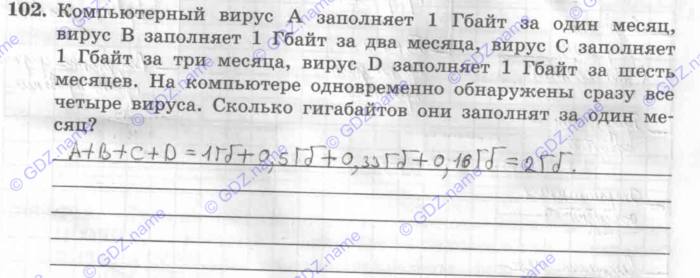 102. Компьютерный вирус А заполняет 1 Гбайт за один месяц,
вирус В заполняет 1 Гбайт за два месяца, вирус С заполняет
1 Гбайт за три месяца, вирус D заполняет 1 Гбайт за шесть
месяцев. На компьютере одновременно обнаружены сразу все
четыре вируса. Сколько гигабайтов они заполнят за один ме-
сяц?
A+B+C+D = 1Гб+0,5Гб+0,33Гб+0,16Гб = 2Гб.
© GDZ.name
© GDZ.name
© GDZ.name
© GDZ.name
© GDZ.name
© GDZ.name
© GDZ.name